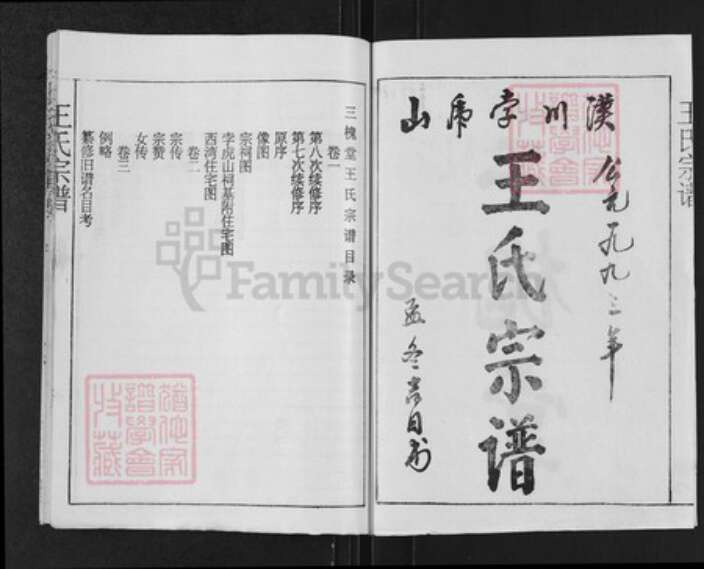 王氏宗谱
漢川李虎山
公元一九九三年
王氏宗谱
孟冬吉日书
猶他家
譜學會
特藏
三槐堂王氏宗谱目录
卷一
第八次续修序
第七次续修序
原序
像图
宗祠图
李虎山祠基附住宅图
西湾住宅图
卷二
宗传
宗赞
女传
卷三
例略
纂修旧谱名目考
王氏宗谱
猶他家
譜學會
特藏
FamilySearch